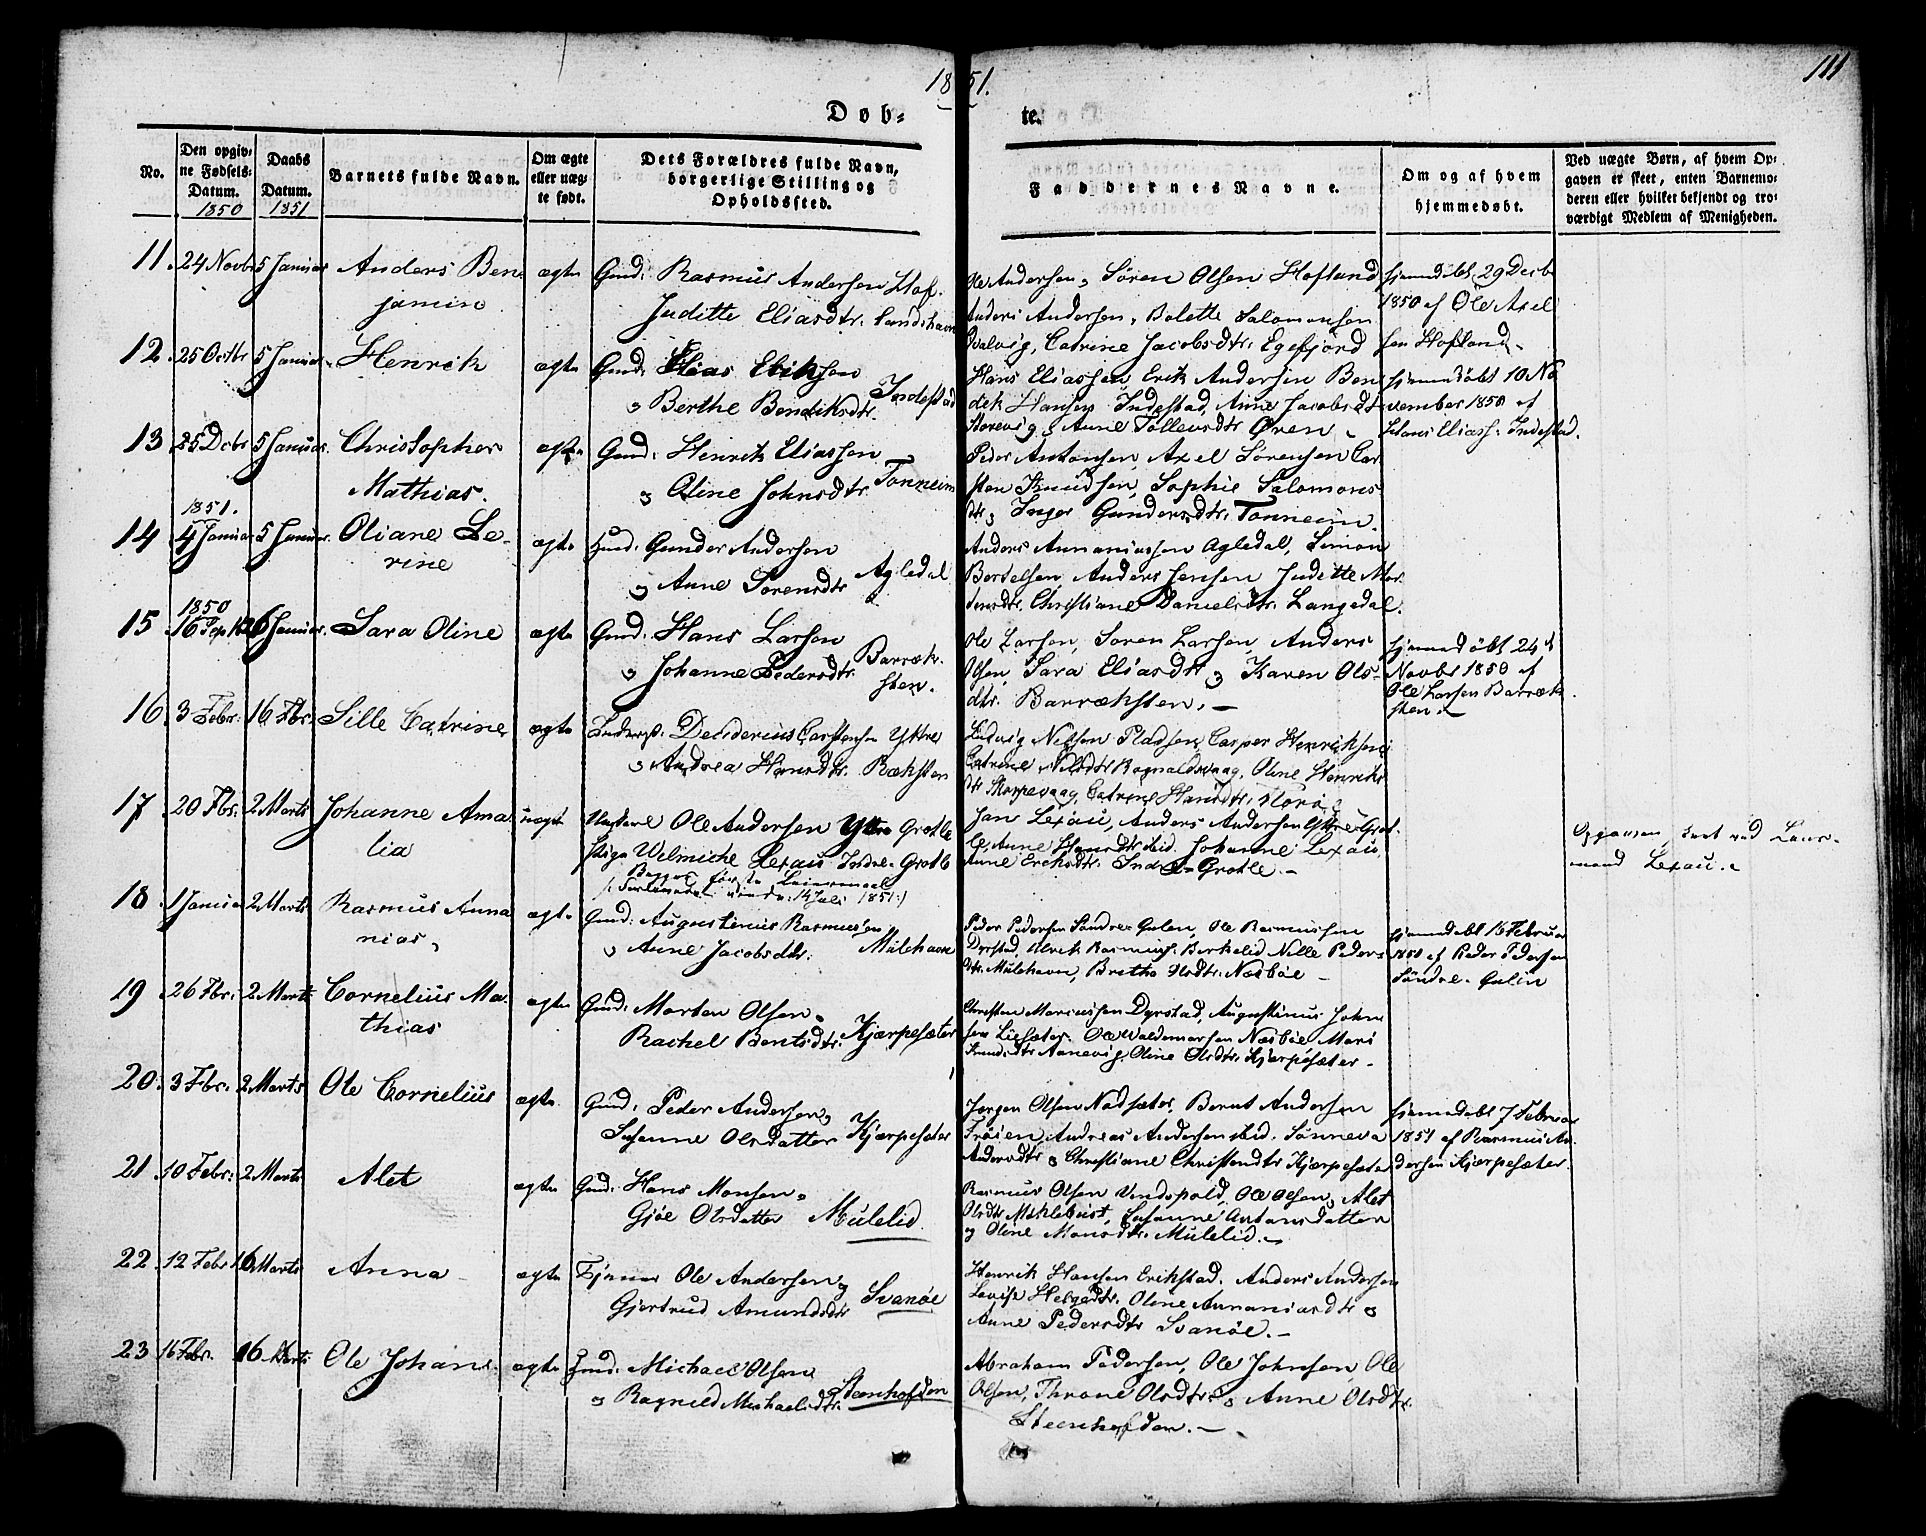 1851.
111
Døbte.
No.
Den opgivne Fødsels-Datum. 1850
Daabs Datum. 1851
Barnets fulde Navn.
Om ægte eller uægte født.
Dets Forældres fulde Navn, borgerlige Stilling og Opholdssted.
Faddernes Navne.
Om og af hvem hjemmedøbt.
Ved uægte Børn, af hvem Opgaven er skeet, enten Barnemoderen eller hvilket bekjendt og troværdigt Medlem af Menigheden.
11. 24 Novbr 5 Januar Anders Ben
jamin
ægte
Gmd: Rasmus Andersen Hof.
Juditte Eliasdtr. Sandshavn
Ole Andersen, Søren Olsen Hofland
Anders Andersen, Bolette Salomonsen
Catrine Jacobsdtr. Egefjord
hjemmedøbt 29 Decbr
1850 af Ole Axel
sen Hofland
12. 25 Octbr 5 Januar Henrik
ægte
Gmd: Elias Eriksen
og Berthe Bendiksdtr. Indestad
Hans Eliassen, Erik Andersen Ben
dik Hansen Indestad, Anne Jacobsdt
Storevig, Anne Tollevsdtr Øren
hjemmedøbt 10 No
vember 1850 af
Hans Eliass: Indestad.
13. 25 Decbr 5 Januar Christopher
Mathias.
ægte
Gmd: Henrik Eliassen
og Oline Johnsdtr. Tonneim
Peder Antonsen, Axel Sørensen Car
sten Knudsen, Sophie Salomons
dtr, Inger Gundersdtr. Tonneim.
1851.
14. 4 Januar 5 Januar. Oliane Se-
rine
ægte
Gmd: Gunder Andersen
og Anne Sørensdtr Agledal
Anders Annaniassen Agledal, Simon
Bertelsen, Anders Jensen Juditte Mor
tensdtr. Christiane Danielsdtr. Langedal.
1850
15. 16 Septb 26 Januar. Sara Oline
ægte
Gmd: Hans Larsen
og Johanne Pedersdtr. Barræk-
sten.
Ole Larsen, Søren Larsen, Anders
Olsen, Sara Eliasdtr og Karen Ols-
dtr. Barræksten.
hjemmedøbt 24d
Novbr 1850 af
Ole Larsen Barræk
sten.
16. 3 Febr: 16 Fbr. Sille Catrine
ægte
Desiderius Carstensen Yttre
og Andrea Hansdtr. Ræksten
Ludvig Nilsen Pladsen, Casper Henriksen
Catrine Nilsdtr Rognaldsvaag, Oline Henriks
dtr Skorpevaag, Catrine Hansdtr. Florø
17. 20 Fbr: 2 Marts Johanne Ama
lia
uægte
Ungkarl Ole Andersen Yttre Grotle
Pige Velmiche Lexau Indre-Grotle
Begges første Leiermaal
14 Juli 1851.)
Jan Lexau, Anders Andersen Yttre Grot-
le, Anne Hansdtr ibid. Johanne Lexau,
Anne Eriksdtr. Indre Grotle.
Opgaven skeet ved Lens-
mand Lexau.
18. 1 Januar 2 Marts Rasmus Anna
nias,
ægte
Gmd: Augustinus Rasmusen
og Anne Jacobsdtr: Mulehavn
Peder Pedersen Søndre-Gulen, Ole Rasmussen
Dyrstad, Ulrik Rasmuss: Berkelid Nille Peders
dtr. Mulehavn, Brethe Olsdtr. Næsbøe
hjemmedøbt 16 Februar
af Peder Pedersen
Søndre-Gulen
19. 26 Fbr: 2 Marts Cornelius Ma-
thias
ægte
Gmd: Morten Olsen
Rachel Bentsdtr. Kjærpesæter
Christen Marcussen Dyrstad, Augustinus John
sen Liesæter, Ole Waldemarsen Næsbøe Mari
Knudsdtr Aanevig, Oline Olsdtr. Kjærpesæter
20. 3 Fbr. 2 Marts Ole Cornelius
ægte
Gmd: Peder Andersen
Susanne Olsdatter Kjærpesæter
Jørgen Olsen Nødsæter, Bernt Andersen
Frøien, Andreas Andersen ibid. Sønneva
Andersdtr og Christiane Christensdtr Kjærpesæter
hjemmedøbt 7 Februar
1851 af Rasmus An-
dersen Kjærpesæter.
21. 10 Febr: 2 Marts Alet
ægte
Gmd: Hans Monsen
Gjøe Olsdatter Mulelid
Rasmus Olsen Vindspold, Ole Olsen, Alet
Olsdtr Myklebust, Susanne Antonsdatter
og Oline Monsdtr. Mulelid.
22. 12 Febr 16 Marts Anna
ægte
Tjener Ole Andersen og
Gjertrud Amundsdtr Svanøe
Henrik Hansen Erikstad. Anders Andersen
Lovise Helgesdtr. Oline Annaniasdtr og
Anne Pedersdtr Svanøe.
23 16 Febr. 16 Marts Ole Johan
ægte
Gmd: Michael Olsen
og Ragnild Michaelsdtr. Steenhofden
Abraham Pedersen, Ole Johnsen, Ole
Olsen, Throne Olsdtr. og Anne Olsdtr.
Steenhofden.